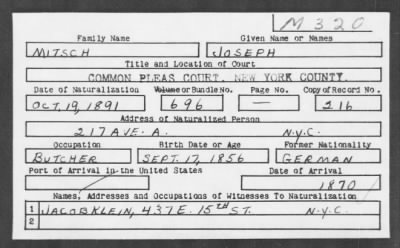 M 320
Family Name Given Name or Names
MITSCH JOSEPH
Title and Location of Court
COMMON PLEAS COURT, NEW YORK COUNTY.
Date of Naturalization Volume or Bundle No. Page No. Copy of Record No.
OCT, 19, 1891 696 — 216
Address of Naturalized Person
217 AVE. A. N.Y.C.
Occupation Birth Date or Age Former Nationality
BUTCHER SEPT. 17, 1856 GERMAN
Port of Arrival in the United States Date of Arrival
1870
Names, Addresses and Occupations of Witnesses To Naturalization
1 JACOB KLEIN, 437 E. 15TH ST. N.Y.C.
2